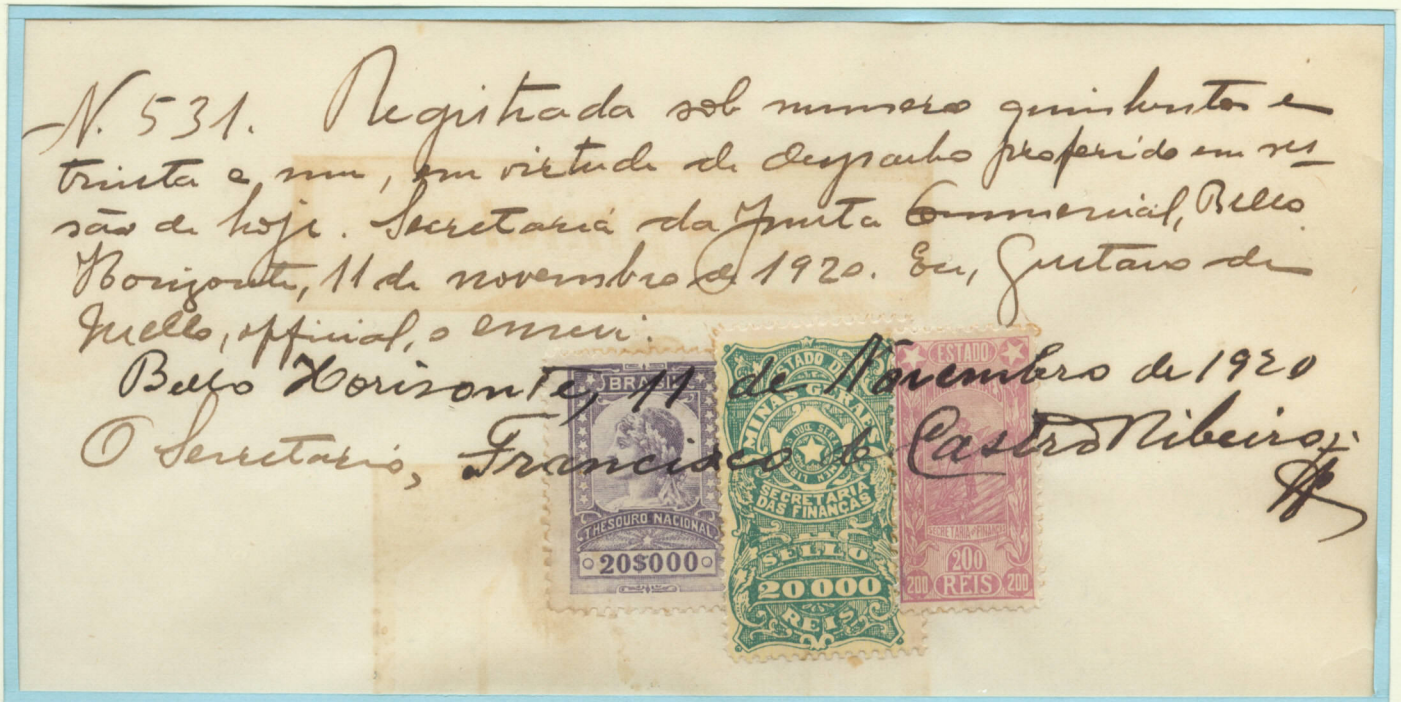 N. 531. Registrada sob numero quinhentos e
trinta e um, em virtude de despacho proferido em ses-
são de hoje. Secretaria da Junta Commercial, Bello
Horizonte, 11 de novembro de 1920. Eu, Gustavo de
Mello, official, o escrevi.
Bello Horisonte, 11 de Novembro de 1920
O Secretario, Francisco de Castro Ribeiro Jr
BRASIL
THESOURO NACIONAL
20$000
ESTADO DE
MINAS GERAES
LIBERTAS QUÆ SERA TAMEN
SECRETARIA
DAS FINANÇAS
SELLO
20000
REIS
ESTADO
SECRETARIA FINANÇAS
200
200 REIS 200